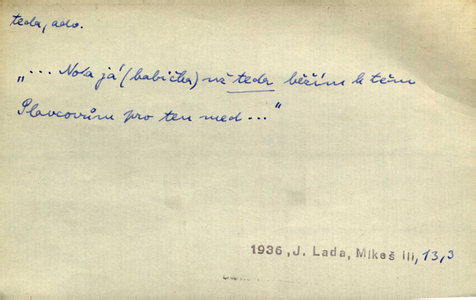 teda, adv.
„... Nota já (babička) už teda běžím k těm
Slavcovům pro ten med ..."
1936, J. Lada, Mikeš III, 13,3